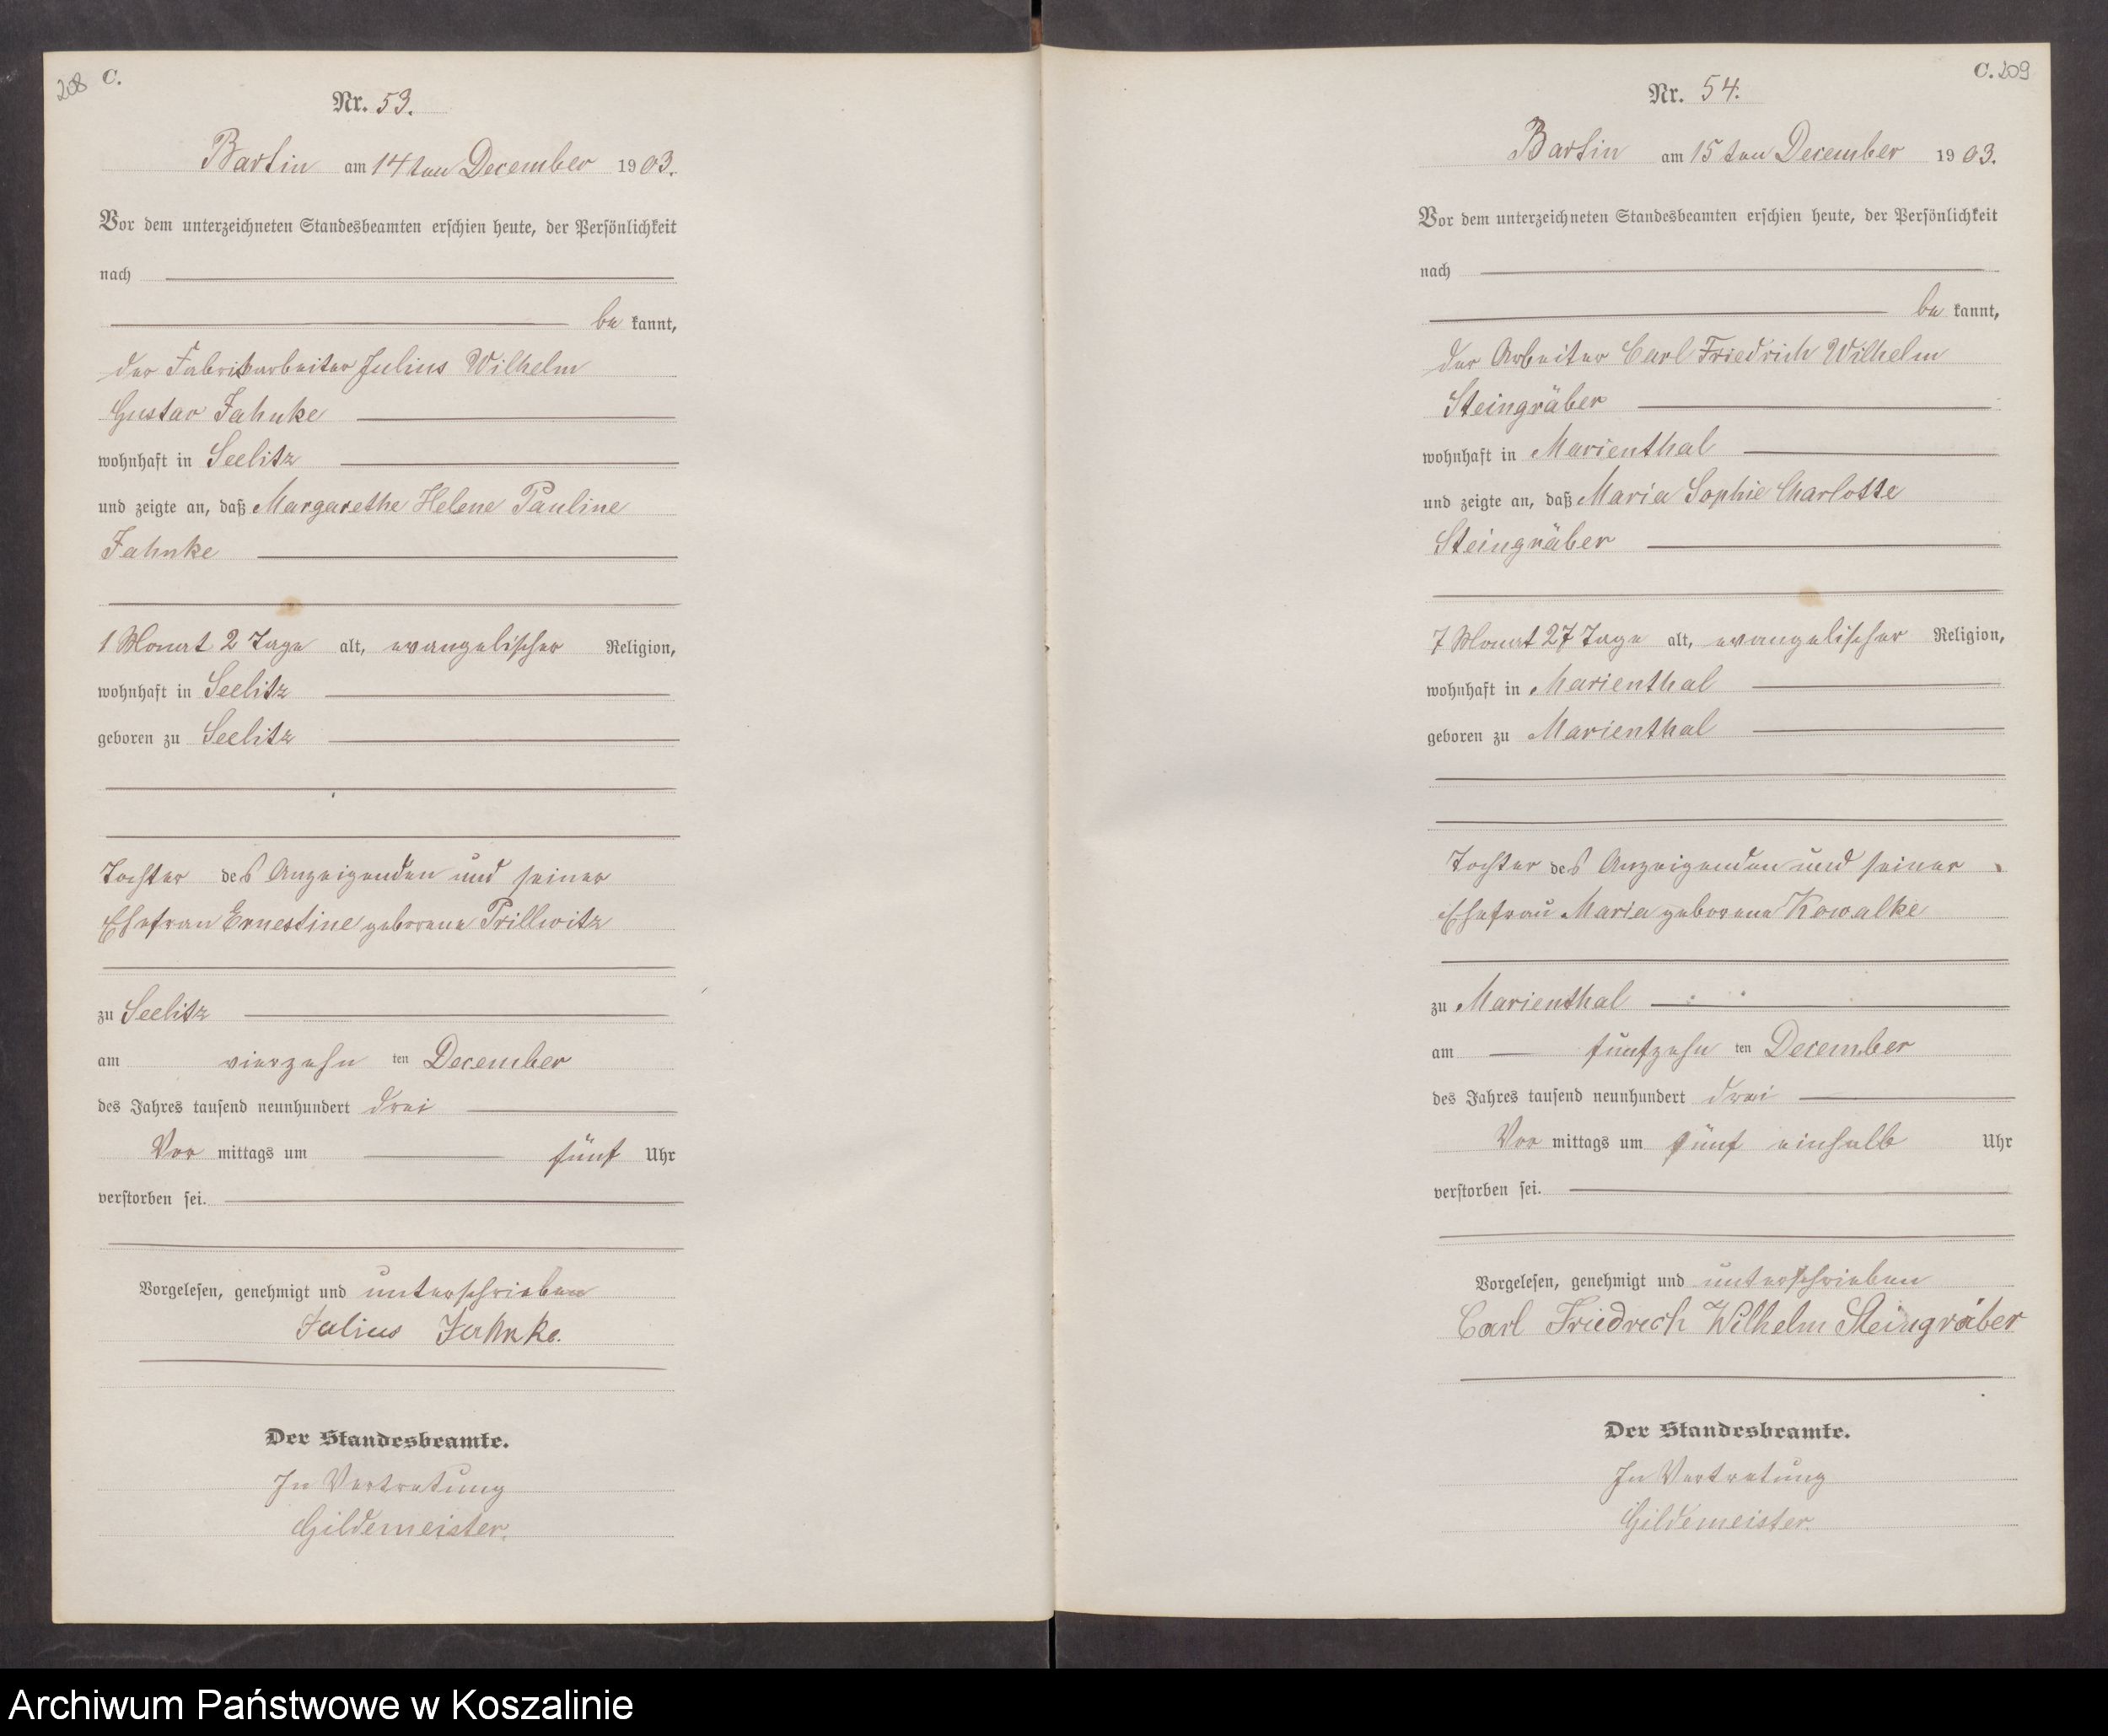 208 C.
Nr. 53.
Bartin am 14ten December 1903.
Vor dem unterzeichneten Standesbeamten erschien heute, der Persönlichkeit
nach
be kannt,
der Fabrikarbeiter Julius Wilhelm
Gustav Jahnke
wohnhaft in Seelitz
und zeigte an, daß Margarethe Helene Pauline
Jahnke
1 Monat 2 Tage alt, evangelischer Religion,
wohnhaft in Seelitz
geboren zu Seelitz
Tochter des Anzeigenden und seiner
Ehefrau Ernestine geborene Prillwitz
zu Seelitz
am vierzehn ten December
des Jahres tausend neunhundert drei
Vor mittags um fünf Uhr
verstorben sei.
Vorgelesen, genehmigt und unterschrieben
Julius Jahnke.
Der Standesbeamte.
In Vertretung
Gildemeister.
C. 209
Nr. 54.
Bartin am 15ten December 1903.
Vor dem unterzeichneten Standesbeamten erschien heute, der Persönlichkeit
nach
be kannt,
der Arbeiter Carl Friedrich Wilhelm
Steingräber
wohnhaft in Marienthal
und zeigte an, daß Maria Sophie Charlotte
Steingräber
7 Monat 27 Tage alt, evangelischer Religion,
wohnhaft in Marienthal
geboren zu Marienthal
Tochter des Anzeigenden und seiner
Ehefrau Maria geborene Kowalke
zu Marienthal
am fünfzehn ten December
des Jahres tausend neunhundert drei
Vor mittags um fünf einhalb Uhr
verstorben sei.
Vorgelesen, genehmigt und unterschrieben
Carl Friedrich Wilhelm Steingräber
Der Standesbeamte.
In Vertretung
Gildemeister.
Archiwum Państwowe w Koszalinie